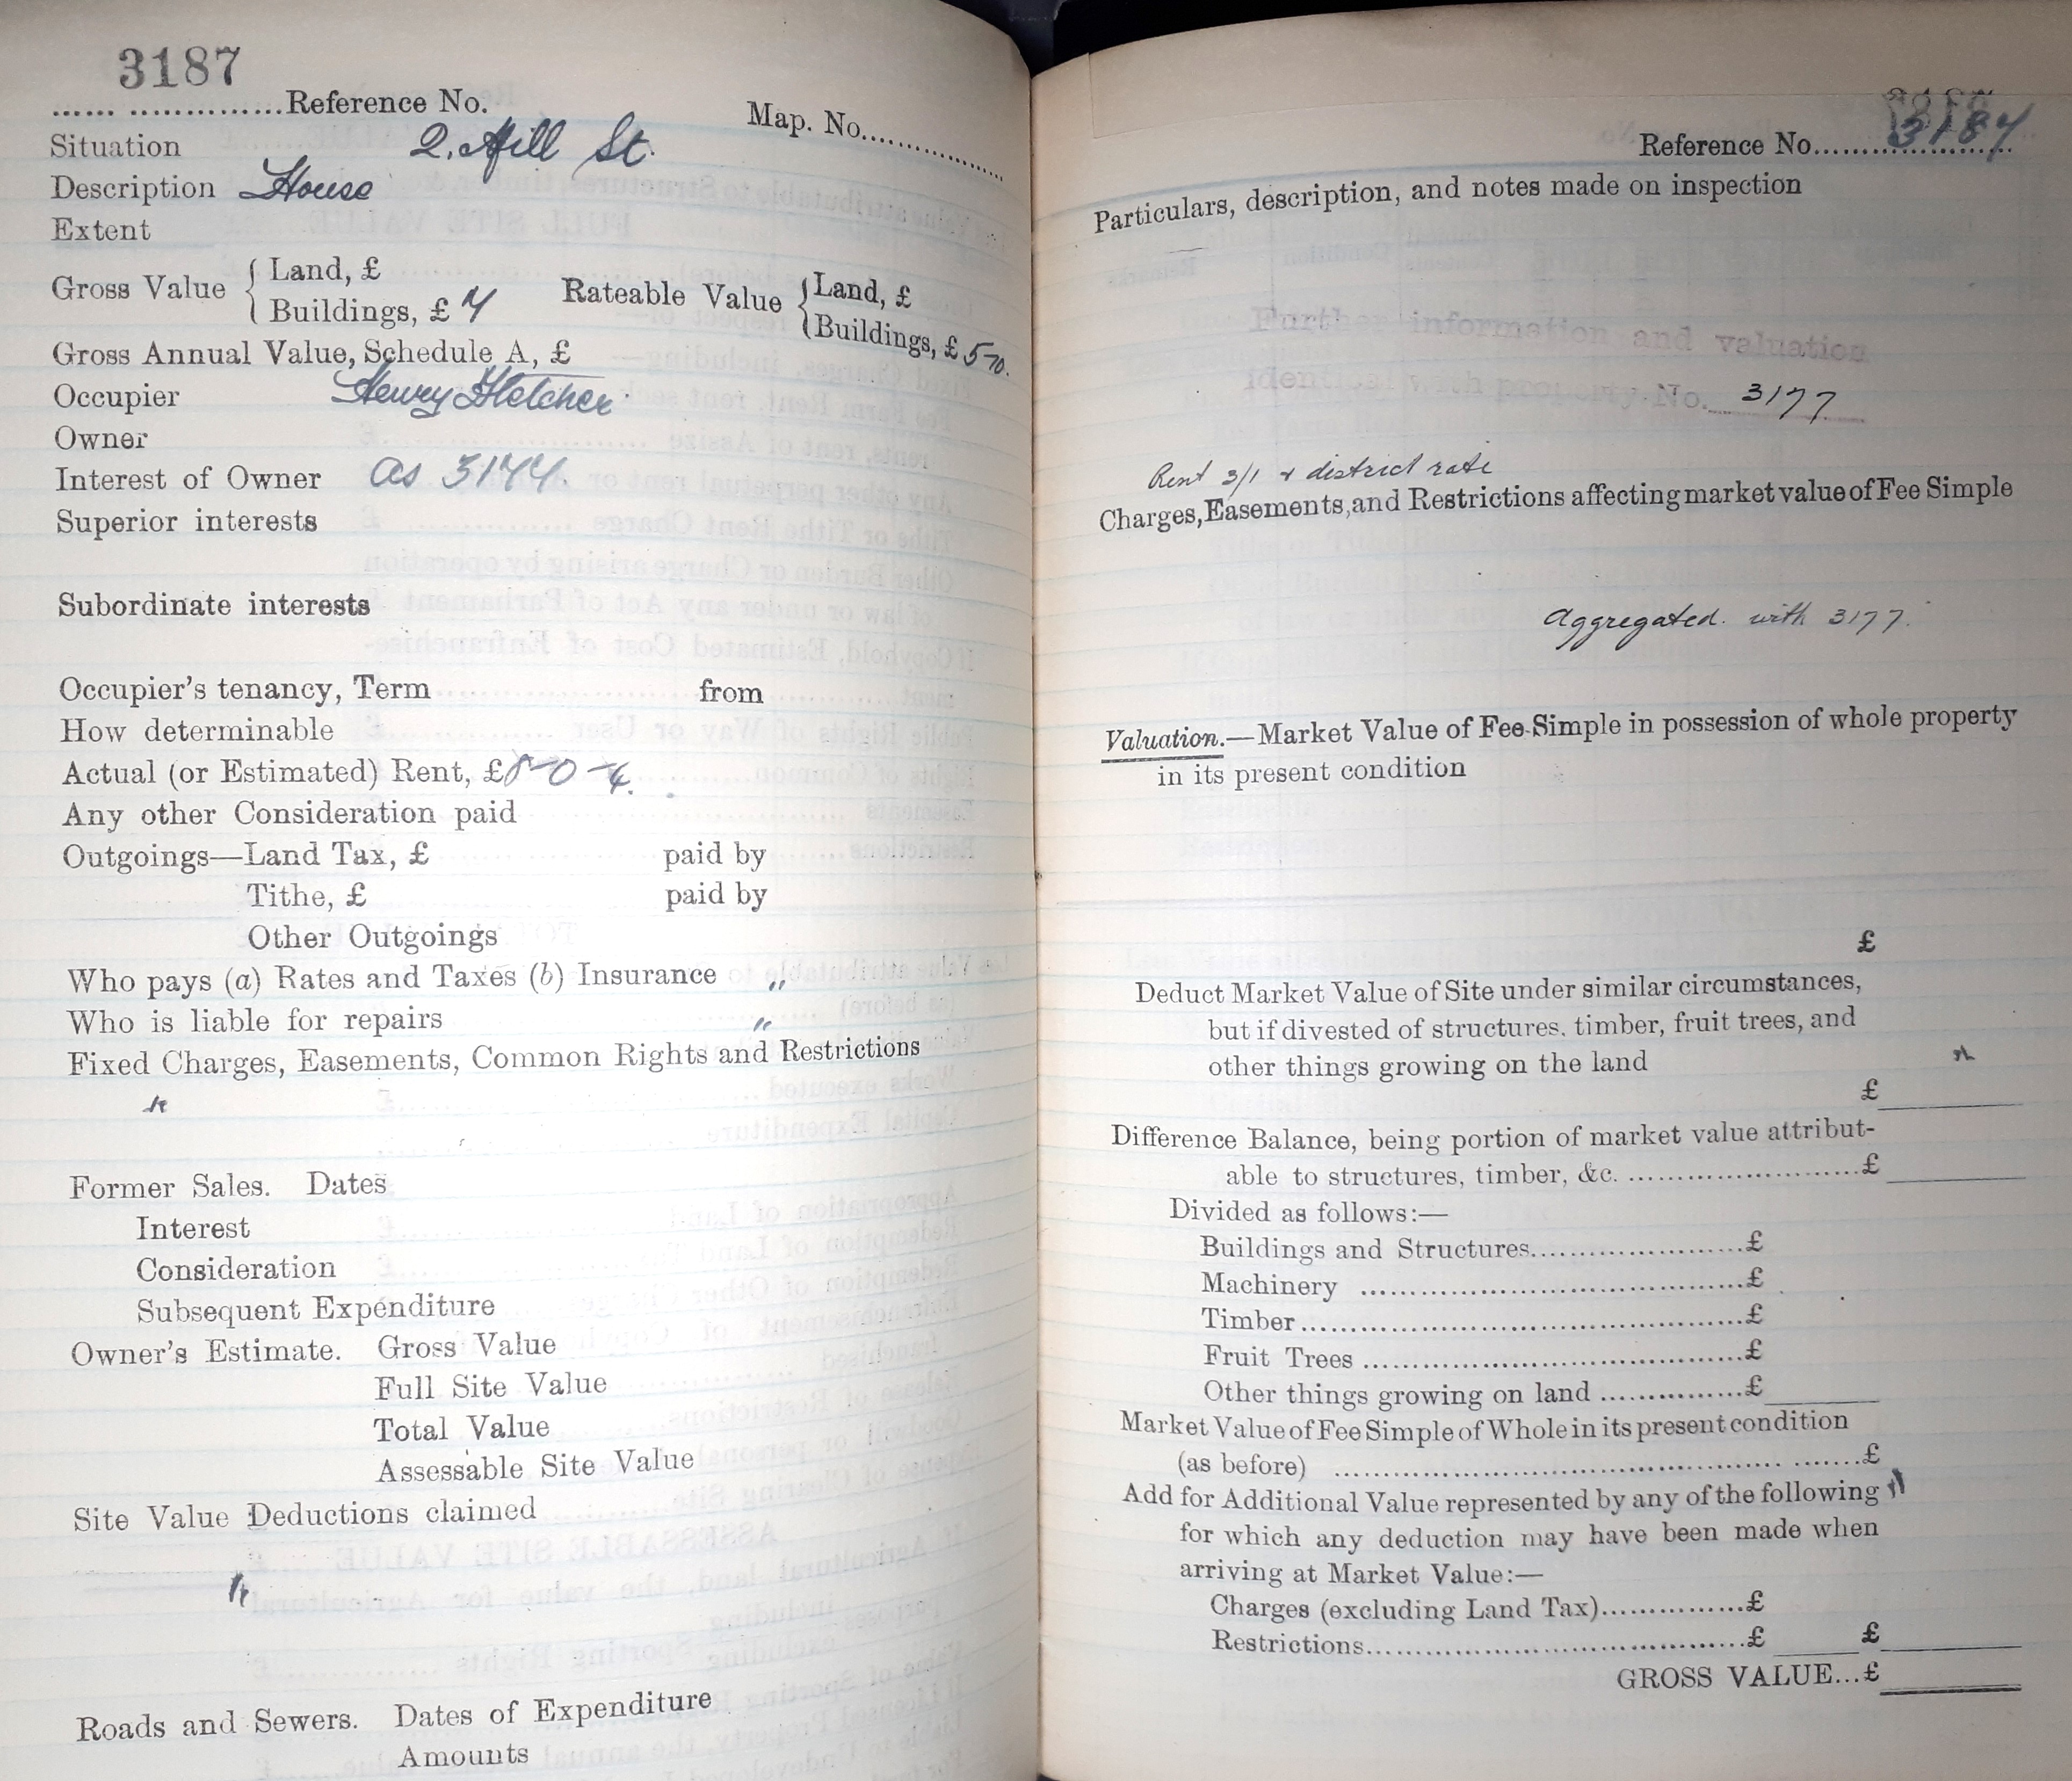 3187
.....................Reference No.
Map. No....................
Situation 2. Hill St.
Description House
Extent
Gross Value { Land, £
Buildings, £ 7
Rateable Value { Land, £
Buildings, £ 5-10.
Gross Annual Value, Schedule A, £
Occupier Henry Fletcher
Owner
Interest of Owner as 3174.
Superior interests
Subordinate interests
Occupier's tenancy, Term from
How determinable
Actual (or Estimated) Rent, £8-0-4.
Any other Consideration paid
Outgoings—Land Tax, £ paid by
Tithe, £ paid by
Other Outgoings
Who pays (a) Rates and Taxes (b) Insurance "
Who is liable for repairs "
Fixed Charges, Easements, Common Rights and Restrictions
Former Sales. Dates
Interest
Consideration
Subsequent Expenditure
Owner's Estimate. Gross Value
Full Site Value
Total Value
Assessable Site Value
Site Value Deductions claimed
Roads and Sewers. Dates of Expenditure
Amounts
Reference No.................... 3187
Particulars, description, and notes made on inspection
Further information and valuation
identical with property No. 3177
Rent 3/1 + district rate
Charges, Easements, and Restrictions affecting market value of Fee Simple
Aggregated. with 3177.
Valuation.—Market Value of Fee Simple in possession of whole property
in its present condition
£
Deduct Market Value of Site under similar circumstances,
but if divested of structures, timber, fruit trees, and
other things growing on the land
£
Difference Balance, being portion of market value attribut-
able to structures, timber, &c. ........................£
Divided as follows:—
Buildings and Structures......................£
Machinery .......................................£
Timber.............................................£
Fruit Trees .......................................£
Other things growing on land ...............£
Market Value of Fee Simple of Whole in its present condition
(as before) ..........................................................£
Add for Additional Value represented by any of the following
for which any deduction may have been made when
arriving at Market Value:—
Charges (excluding Land Tax)...............£
Restrictions.......................................£ £
GROSS VALUE...£